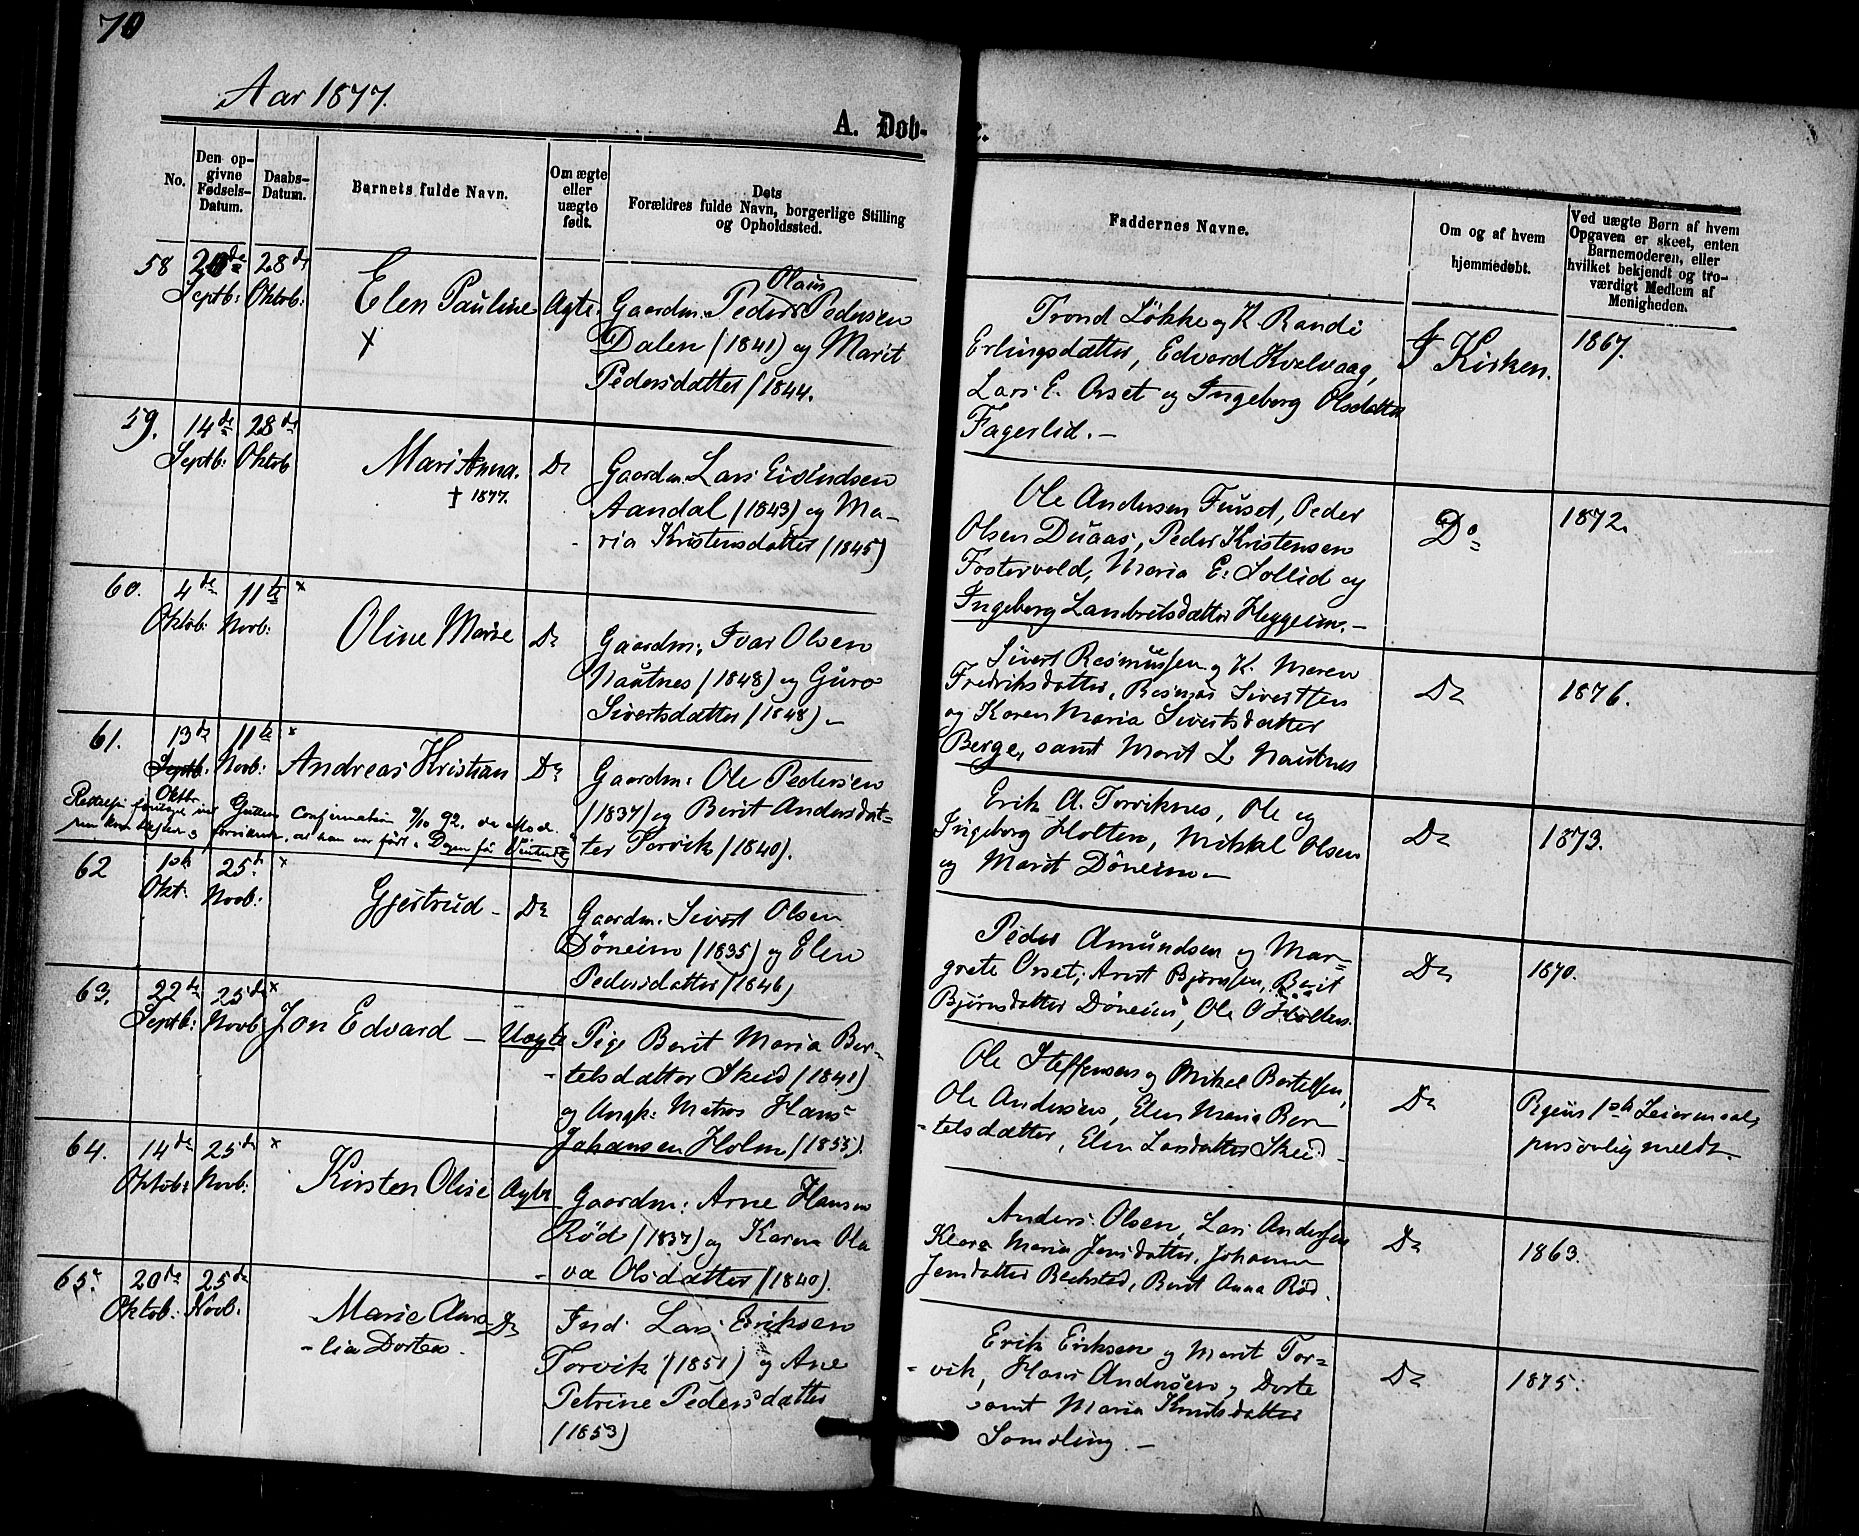 70
Aar 1877.
A. Døb-
e.
No.
Den op-
givne
Fødsels-
Datum.
Daabs-
Datum.
Barnets fulde Navn.
Om ægte
eller
uægte
født.
Dets
Forældres fulde Navn, borgerlige Stilling
og Opholdssted.
Faddernes Navne.
Om og af hvem
hjemmedøbt.
Ved uægte Børn af hvem
Opgaven er skeet, enten
Barnemoderen, eller
hvilket bekjendt og tro-
værdigt Medlem af
Menigheden.
58
20de
Septb:
28de
Oktob:
Elen Pauline
Ægte.
Olaus
Gaardm. Peder Pedersen
Dalen (1841) og Marit
Pedersdatter (1844.
Trond Løkke og K. Randi
Erlingsdatter, Edvard Kvalvaag,
Lars E. Orset og Ingeborg Olsdatter
Fagerlid. –
I Kirken.
1867.
59.
14de
Septb:
28de
Oktob
Mari Anna.
† 1877.
Do
Gaardm. Lars Eivindsen
Aandal (1843) og Ma-
ria Kristensdatter (1845)
Ole Andersen Furset, Peder
Olsen Duaas, Peder Kristensen
Fostervold, Maria E. Sollid og
Ingeborg Lambritsdatter Heggeim. –
Do
1872.
60.
4de
Oktob:
11te
Novb:
Oline Marie
Do
Gaardm: Ivar Olsen
Nautnes (1848) og Guro
Sivertsdatter (1848) –
Sivert Rasmussen og K. Maren
Fredriksdatter, Rasmus Sivertsen
og Karen Maria Sivertsdatter
Berge, samt Marit L Nautnes
Do
1876.
61.
13de
Septb.
Oktbr
11te
Novb:
Andreas Kristian
Do
Gaardm: Ole Pedersen
(1837) og Berit Andersdat-
ter Torvik (1840).
Confirmation 9/10 92. da
at han var født Dagen før
Erik A. Torviknes, Ole og
Ingeborg Holten, Mikkal Olsen
og Marit Døneim –
Do
1873.
62
1ste
Okt.
25de
Novb:
Gjertrud –
Do
Gaardm. Sivert Olsen
Døneim (1835) og Elen
Pedersdatter (1846)
Peder Amundsen og Mar-
grete Orset, Arnt Bjørnsen, Berit
Bjørnsdatter Døneim, Ole O Holten.
Do
1870.
63.
22de
Septb:
25de
Novb
Jon Edvard –
Uægte
Pige Berit Maria Ber-
telsdatter Skeid (1841)
og Ungk: Matros Hans
Johansen Holm (1855).
Ole Steffensen og Mikal Bertelsen,
Ole Andersen, Elen Maria Ber-
telsdatter, Elen Larsdatter Skeid
Do
1ste Leiermaal,
personlig meldt.
64.
14de
Oktob:
25de
Novb:
Kirsten Oline
Ægte
Gaardm: Arne Hansen
Rød (1837) og Karen Ola
va Olsdatter (1840).
Anders Olsen, Lars Andersen
Klara Maria Jensdatter, Johanna
Jensdatter Bekstad, Berit Anna Rød.
Do
1863.
65.
20de
Oktob:
25de
Novb.
Marie Ama-
lia Dortea.
Do
Ind. Lars Eriksen
Torvik (1851) og Ane
Petrine Pedersdatter
(1853)
Erik Eriksen og Marit Tor-
vik, Hans Andersen og Dorte
samt Maria Knutsdatter
Somoling. –
Do
1875.